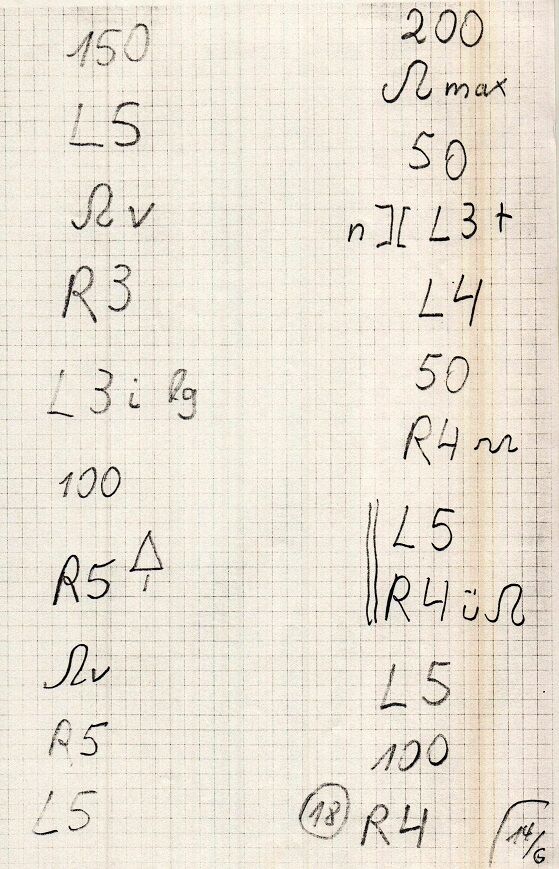 150
L5
Ω v
R3
L3 i Rg
100
R5
Ω v
R5
L5
200
Ω max
50
n ][ L3 +
L4
50
R4
L5
R4 ü Ω
L5
100
18 R4
14/6